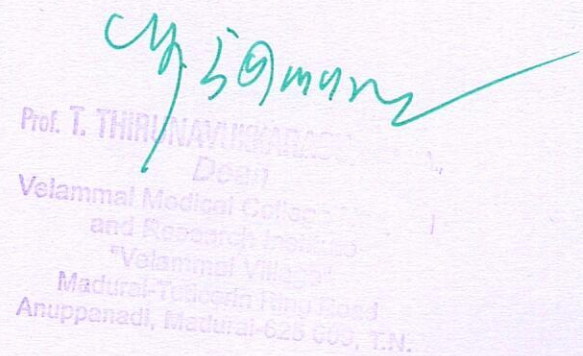 Prof. T. THIRUNAVUKKARASU
Dean
Velammal Medical College
and Research Institute
"Velammal Village"
Madurai-Tuticorin Ring Road
Anuppanadi, Madurai-625 009, T.N.